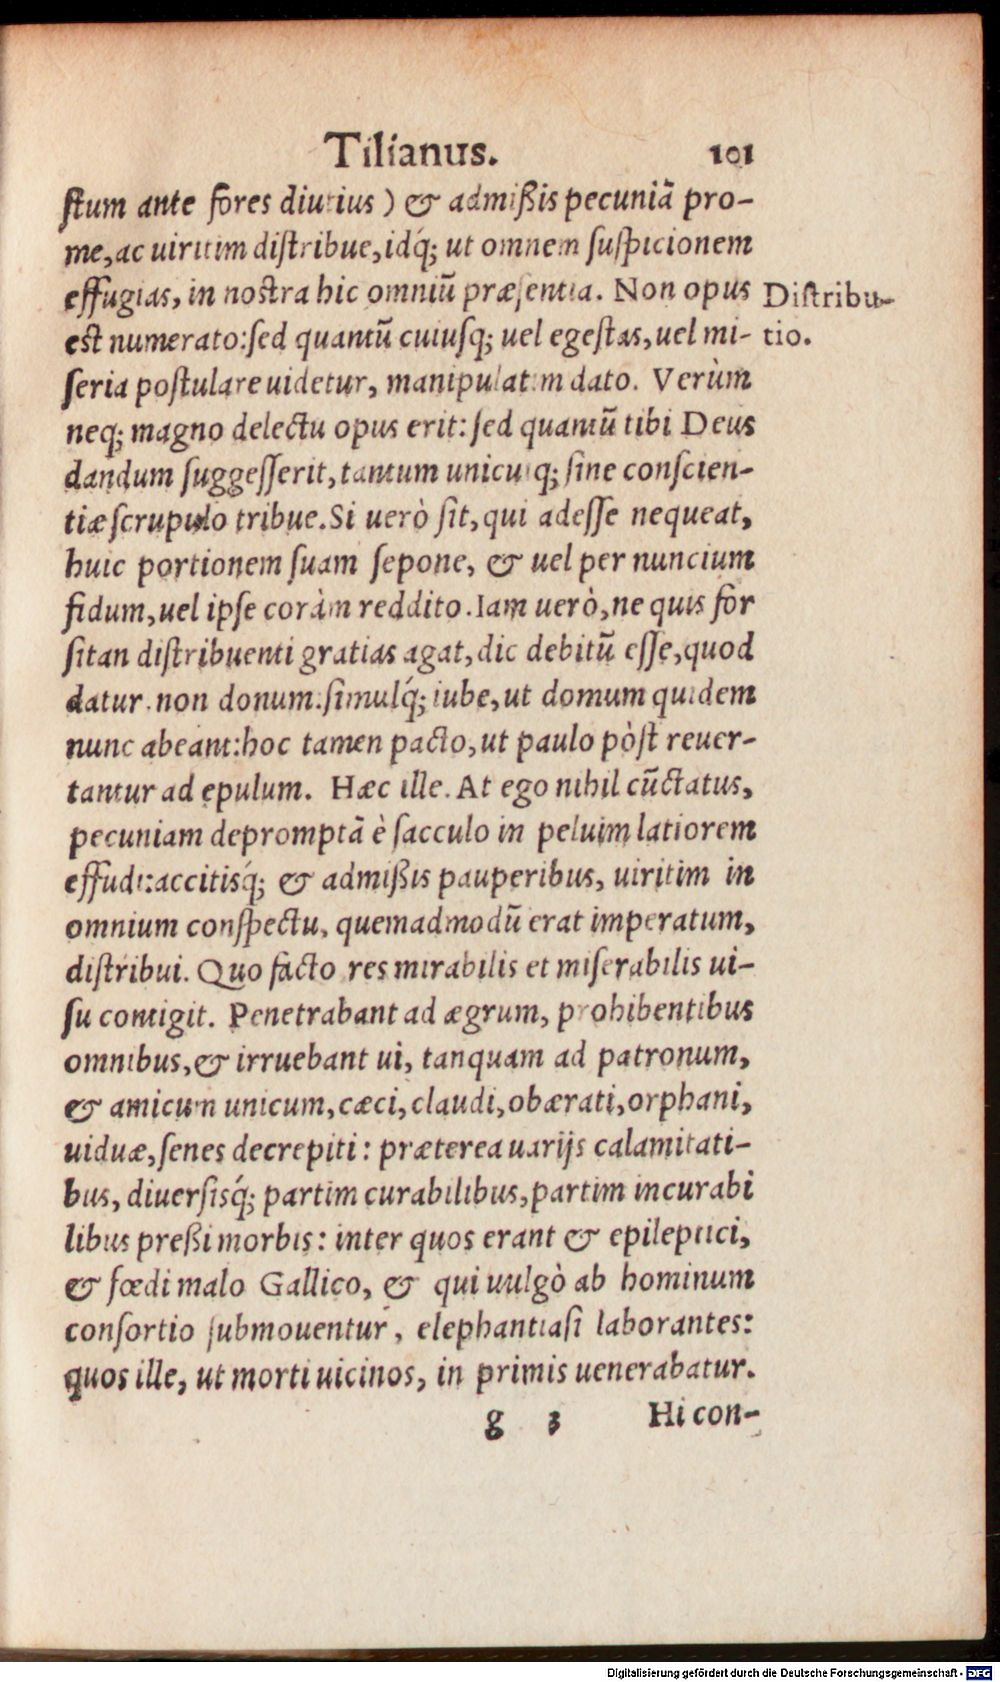 Tilianus. 101
ſtum ante fores diutius ) & admißis pecuniã pro-
me, ac uiritim diſtribue, idq́; ut omnem ſuſpicionem
effugias, in noſtra hic omniũ præſentia. Non opus
Diſtribu-
eſt numerato: ſed quantũ cuiuſq; uel egeſtas, uel mi-
tio.
ſeria poſtulare uidetur, manipulatim dato. Verùm
neq; magno delectu opus erit: ſed quantũ tibi Deus
dandum ſuggeſſerit, tantum unicuiq; ſine conſcien-
tiæ ſcrupulo tribue. Si uerò ſit, qui adeſſe nequeat,
huic portionem ſuam ſepone, & uel per nuncium
fidum, uel ipſe coràm reddito. Iam uerò, ne quis for
ſitan diſtribuenti gratias agat, dic debitũ eſſe, quod
datur. non donum: ſimulq́; iube, ut domum quidem
nunc abeant: hoc tamen pacto, ut paulo pòſt reuer-
tantur ad epulum. Hæc ille. At ego nihil cũctatus,
pecuniam depromptã è ſacculo in peluim latiorem
effudi: accitisq́; & admißis pauperibus, uiritim in
omnium conſpectu, quemadmodũ erat imperatum,
diſtribui. Quo facto res mirabilis et miſerabilis ui-
ſu contigit. Penetrabant ad ægrum, prohibentibus
omnibus, & irruebant ui, tanquam ad patronum,
& amicum unicum, cæci, claudi, obærati, orphani,
uiduæ, ſenes decrepiti: præterea uarijs calamitati-
bus, diuerſisq́; partim curabilibus, partim incurabi
libus preßi morbis: inter quos erant & epileptici,
& fœdi malo Gallico, & qui uulgò ab hominum
conſortio ſubmouentur, elephantiaſi laborantes:
quos ille, ut morti uicinos, in primis uenerabatur.
g 3 Hi con-
Digitalisierung gefördert durch die Deutsche Forschungsgemeinschaft - DFG